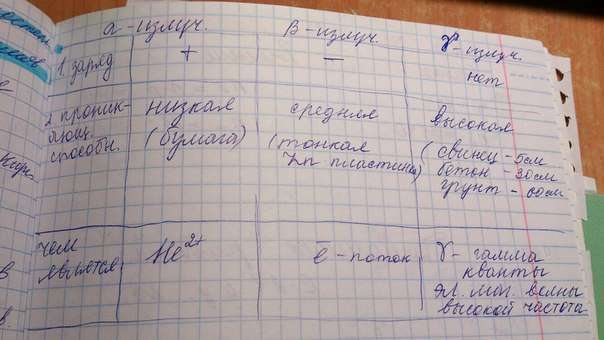 α - излуч.
β - излуч.
γ - излуч.
1. заряд
+
−
нет
2 проник-
ающ.
способн.
низкая
(бумага)
средняя
(тонкая
Zn пластина)
высокая
(свинец - 5см
бетон - 30см
грунт - 60см
чем
является
He2+
ē - поток
γ - гамма
кванты
эл. маг. волны
высокой частота